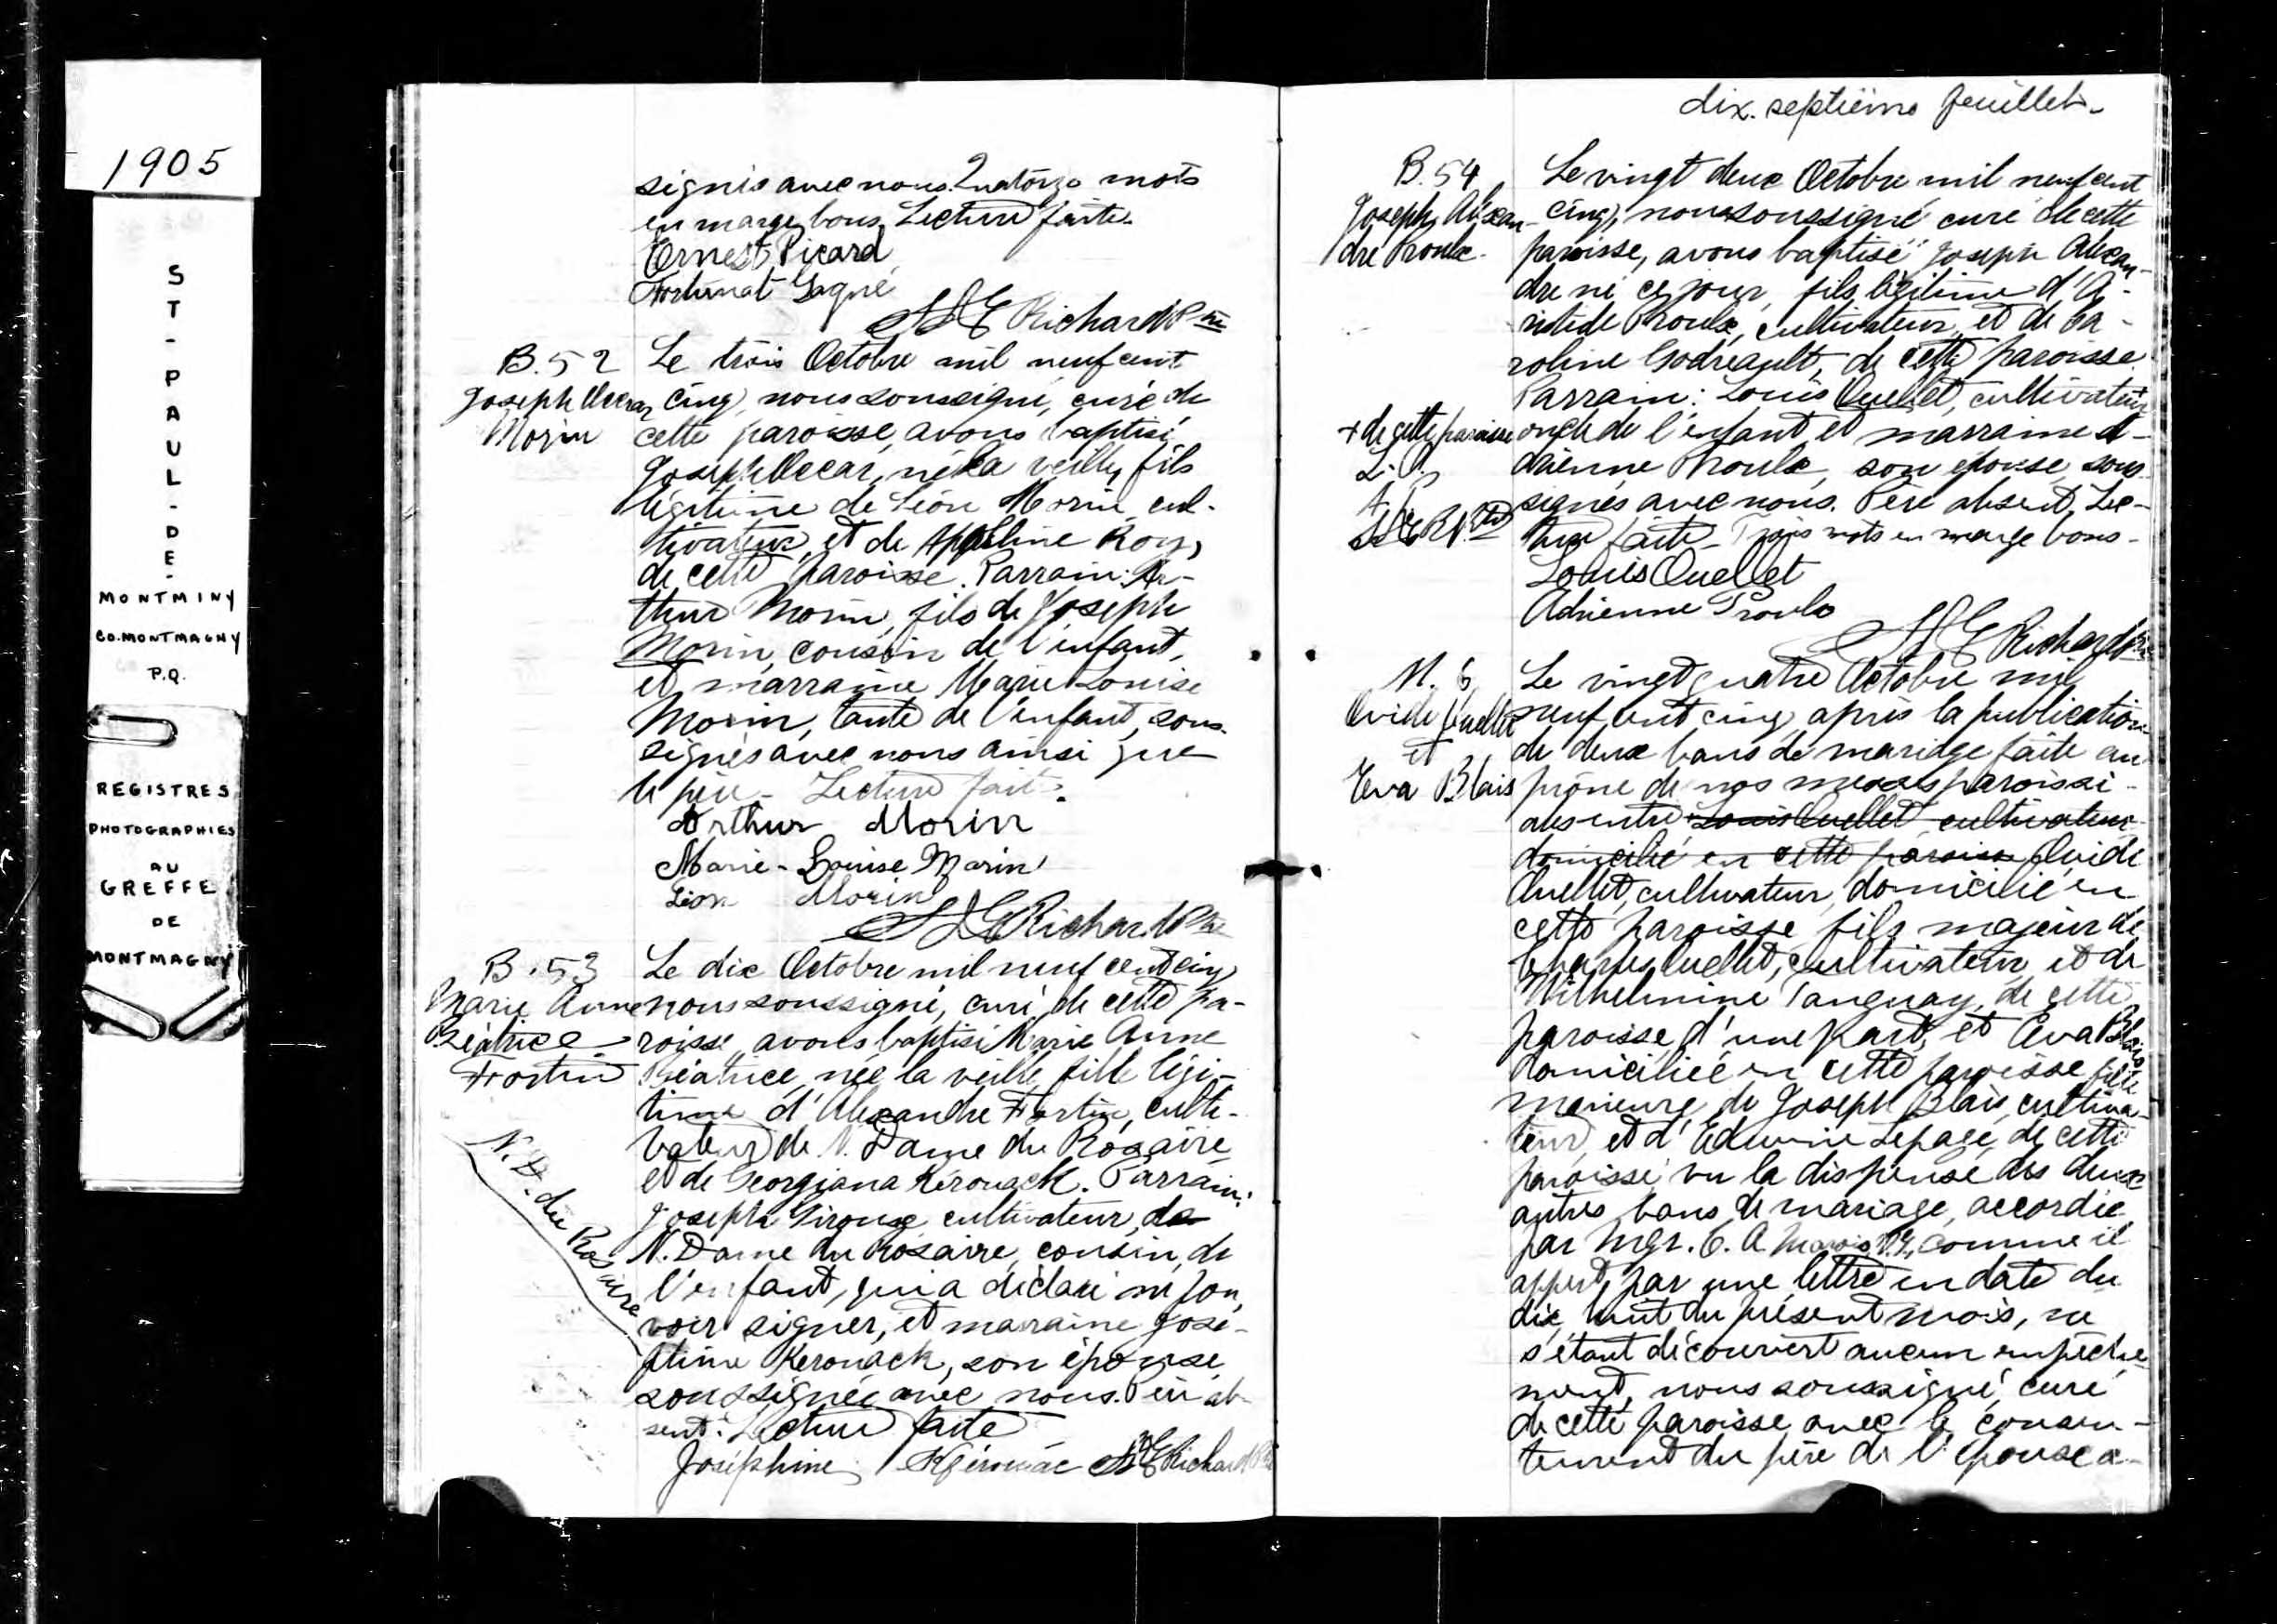 1905
ST-PAUL-DE-
MONTMINY
CO. MONTMAGNY
P.Q.
REGISTRES
PHOTOGRAPHIES
AU
GREFFE
DE
MONTMAGNY
signés avec nous. Quatorze mots
en marge bons. Lecture faite.
Ernest Picard
Fortunat Gagné
Richard Ptre
B. 52
Joseph Oscar
Morin
Le trois Octobre mil neuf cent
cinq, nous soussigné, curé de
cette paroisse, avons baptisé
Joseph Oscar, né la veille, fils
légitime de Léon Morin, cul-
tivateur, et de Appoline Roy,
de cette paroisse. Parrain: Ar-
thur Morin, fils de Joseph
Morin, cousin de l'enfant,
et marraine Marie Louise
Morin, tante de l'enfant, sous-
signés avec nous ainsi que
le père. Lecture faite.
Arthur Morin
Marie-Louise Morin
Léon Morin
Richard Ptre
B. 53
Marie Anne
Béatrice
Fortin
N. D. du Rosaire
Le dix Octobre mil neuf cent cinq
nous soussigné, curé de cette pa-
roisse, avons baptisé Marie Anne
Béatrice, née la veille, fille légi-
time d'Alexandre Fortin, culti-
vateur de N. Dame du Rosaire
et de Georgiana Kérouack. Parrain:
Joseph Giroux cultivateur, de
N. Dame du Rosaire, cousin de
l'enfant, qui a déclaré ne pou-
voir signer, et marraine José-
phine Kerouack, son épouse,
soussignée avec nous. Père ab-
sent. Lecture faite
Joséphine Kérouac Richard Ptre
dix-septième feuillet-
B. 54
Joseph Alexan-
dre Proulx
+ de cette paroisse
L. O.
A. P.
Le vingt deux Octobre mil neuf cent
cinq, nous soussigné curé de cette
paroisse, avons baptisé Joseph Alexan-
dre né ce jour, fils légitime d'A-
ristide Proulx, cultivateur, et de Ca-
roline Godreault, de cette paroisse.
Parrain: Louis Ouellet, cultivateur
oncle de l'enfant, et marraine A-
drienne Proulx, son épouse, sous-
signés avec nous. Père absent. Lec-
ture faite - Trois mots en marge bons-
Louis Ouellet
Adrienne Proulx
Richard Ptre
M. 6
Ovide Ouellet
et
Eva Blais
Le vingt quatre Octobre mil
neuf cent cinq, après la publication
de deux bans de mariage faite au
prône de nos messes paroissi-
ales entre Louis Ouellet cultivateur
domicilié en cette paroisse Ovide
Ouellet, cultivateur, domicilié en
cette paroisse fils majeur de
Charles Ouellet, cultivateur, et de
Wilhelmine Tanguay, de cette
paroisse d'une part, et Eva Blais
domiciliée en cette paroisse fille
mineure de Joseph Blais, cultiva-
teur, et d'Edwine Lepage, de cette
paroisse, vu la dispense des deux
autres bans de mariage, accordée
par Mgr. C. A. Marois V. G, comme il
appert, par une lettre en date du
dix huit du présent mois, ne
s'étant découvert aucun empêche-
ment, nous soussigné, curé
de cette paroisse avec le consen-
tement du père de l'épouse a-